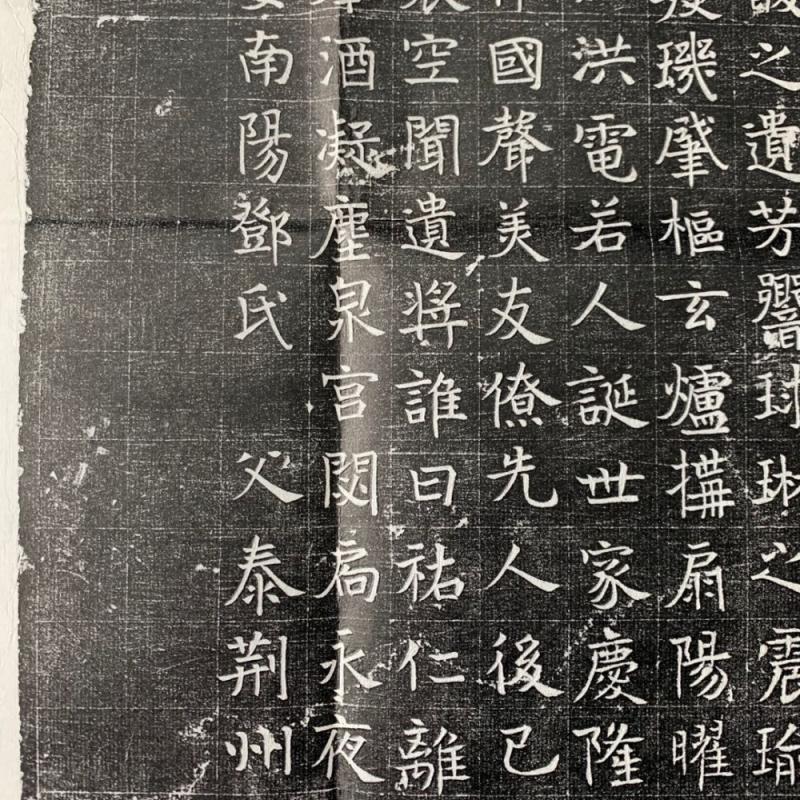 之遺芳響球琳之震瑜
璣肇樞玄爐搆扇陽曜
洪電若人誕世家慶隆
國聲美友僚先人後已
空聞遺將誰曰祐仁離
酒凝塵泉宮閔扃永夜
南陽鄧氏 父泰荊州